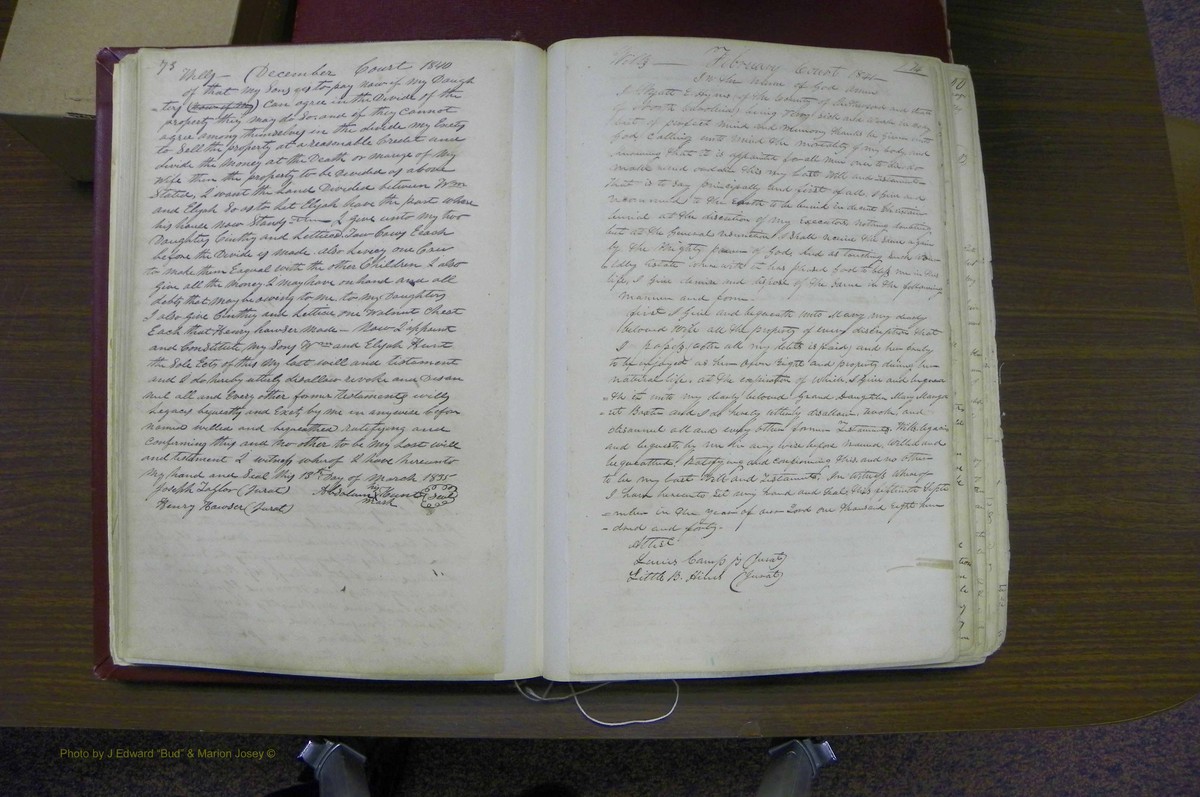 73 Wills — December Court 1840
of that my Sons is to pay now if my Daugh
-ters can agree in the Divide of the
property they may do so and if they cannot
agree among themselves in the divide my Exets
to Sell the property at a reasonable Credit and
divide the Money at the Death or marage of My
Wife then the property to be Devided as above
Stated, I want the Land Devided between Wm
and Elijah So as to let Elijah have the part where
his house now Stands, I give unto my two
Daughters Cinthy and Lettice Two Cows Each
before the Divide is made also Levicy one Cow
to make them Equal with the other Children I also
Give all the Money I may have on hand and all
debts that may be owing to me to my Daughters
I also Give Cinthy and Lettice one Walnut Chest
Each that Henry hawser Made — Now I appoint
and Constitute my Sons Wm and Elijah Hunt
the Sole Exets of this My last will and testament
and I do hereby utterly disallow revoke and Disan
nul all and Every other former testaments wills
Legacys bequests and Exets by me in anywise before
named willed and bequeathed ratifying and
confirming this and no other to be my Last will
and testament I witness whereof I have hereunto
my hand and Seal this 15th Day of March 1835
Joseph Taylor (Jurat) his
Henry Hawser (Jurat) Absalum Hunt (Seal)
mark
Wills — February Court 1841 74
In the name of God Amen
I Wyatt of the County of and State
of North Carolina being very sick and weak in body
but of perfect mind and Memory thanks be given unto
God Calling unto mind the mortality of my body and
knowing that it is appointed for all men once to die do
make and ordain this my Last Will and testament
that is to say principally and first of all I give and
recommend to the Earth to be buried in decent Christian
burial at the discretion of my Executor nothing doubting
but at the General resurrection I shall receive the same again
by the Mighty power of God And as touching such wor
-ldly Estate where with it has pleased God to bless me in this
life, I give demise and dispose of the same in the following
manner and form.
first I give and bequeath unto Mary my dearly
beloved Wife all the property of every description that
I after all my debts is paid, and her body
to be as her own right and property during her
natural life, at the expiration of which, I give and bequea
-the it unto my dearly beloved Grand Daughter Mary Marga
-ret and I do hereby utterly disallow, revoke, and
disannul all and every other former Testaments, Wills, legacies
and bequests, by me in any wise before Named, Willed and
bequeathed, Ratifying and confirming this and no other
to be my last Will and Testament. In witness whereof
I have hereunto set my hand and seal this fifteenth Septe
-mber in the year of our Lord one thousand Eight hun
-dred and forty.
Attest
Lewis Camp (Jurat)
Little B. (Jurat)
Photo by J Edward "Bud" & Marion Josey ©